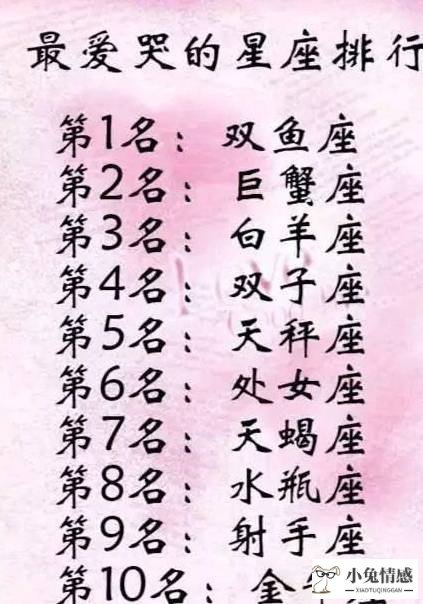 最爱哭的星座排行
第1名：双鱼座
第2名：巨蟹座
第3名：白羊座
第4名：双子座
第5名：天秤座
第6名：处女座
第7名：天蝎座
第8名：水瓶座
第9名：射手座
第10名：金
小兔情感
XIAOTUQINGGAN